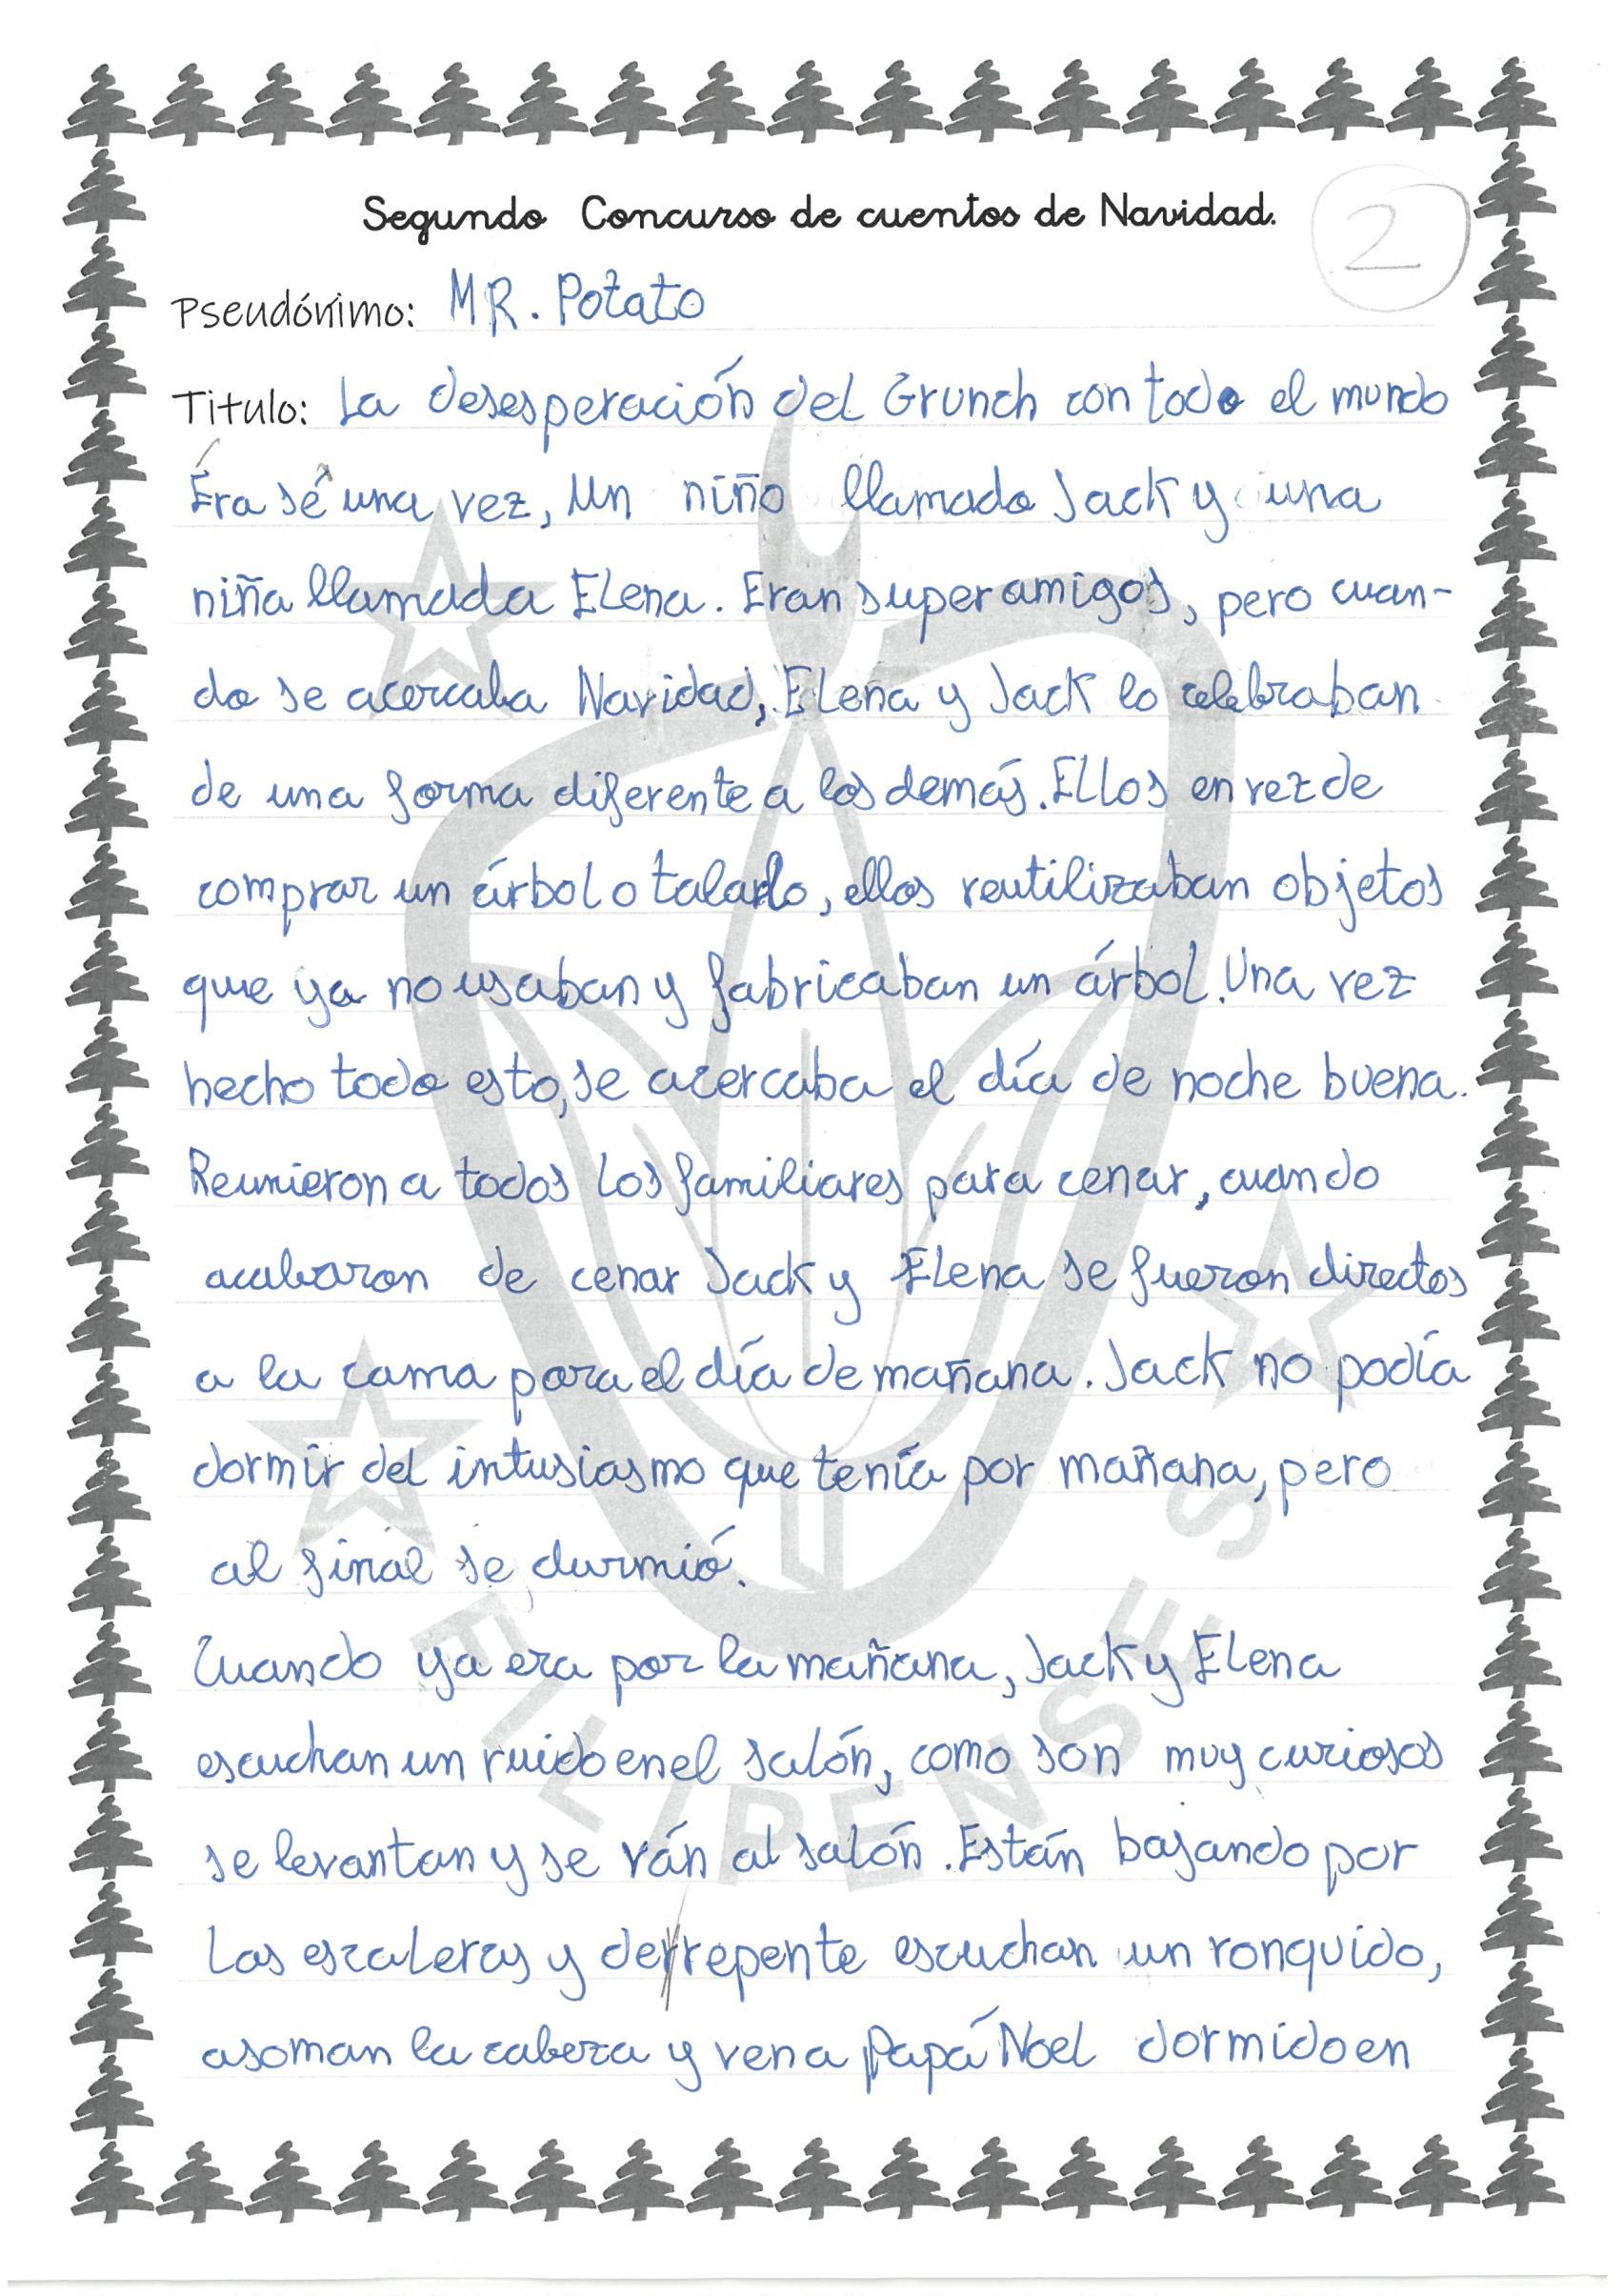 Segundo Concurso de cuentos de Navidad.
2
Pseudónimo: MR. Potato
Titulo: La desesperación del Grunch con todo el mundo
Éra sé una vez, Un niño llamado Jack y una
niña llamada Elena. Eran super amigos, pero cuan-
do se acercaba Navidad, Elena y Jack lo celebraban
de una forma diferente a los demás. Ellos en vez de
comprar un árbol o talarlo, ellos reutilizaban objetos
que ya no usaban y fabricaban un árbol. Una vez
hecho todo esto, se acercaba el día de noche buena.
Reunieron a todos los familiares para cenar, cuando
acabaron de cenar Jack y Elena se fueron directos
a la cama para el día de mañana. Jack no podía
dormir del intusiasmo que tenía por mañana, pero
al final se durmió.
Cuando ya era por la mañana, Jack y Elena
escuchan un ruido en el salón, como son muy curiosos
se levantan y se ván al salón. Están bajando por
las escaleras y derrepente escuchan un ronquido,
asoman la cabeza y ven a Papá Noel dormido en
FILIPENSES